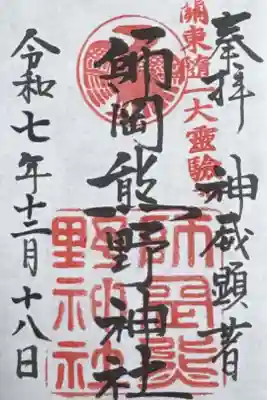 奉拝　神威顕著
關東随一大靈驗
師岡熊野神社
師岡熊野神社
令和七年十二月十八日